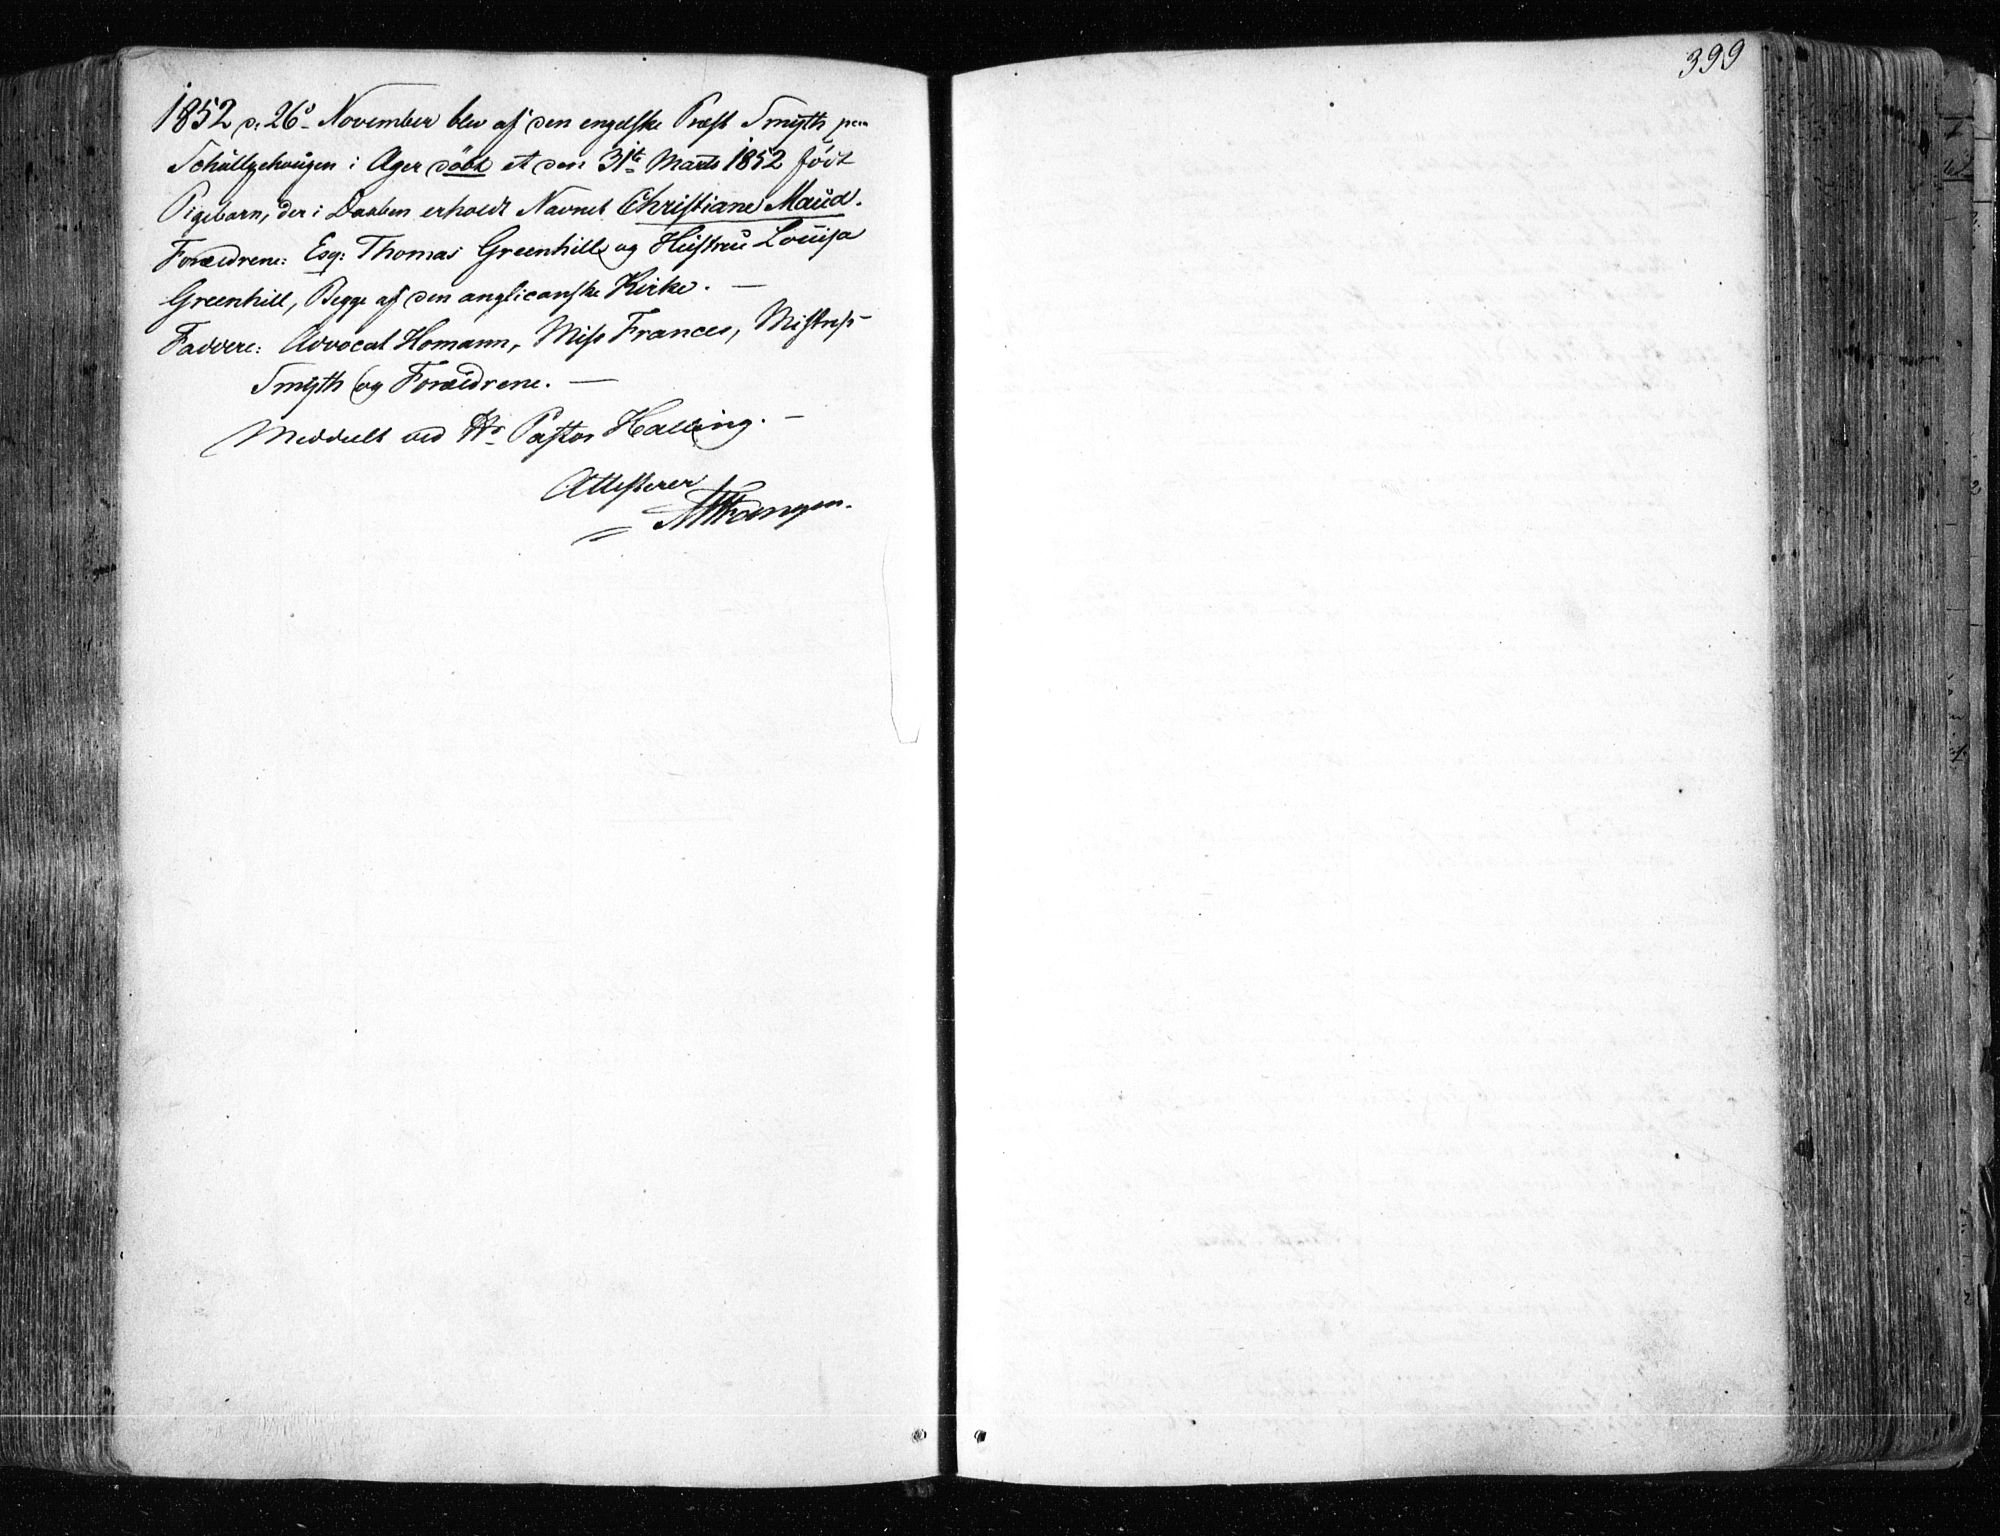 399
1852 d: 26de November blev af den engelske Præst Smyth paa
Schultzehaugen i Ager döbt et den 31te Marts 1852 födt
Pigebarn, der i Daaben erholdt Navnet Christiane Maud.
Forældrene: Esq: Thomas Greenhill og Hustru Louisa
Greenhill, Begge af den anglicanske Kirke. —
Faddere: Advocat Homann, Miss Frances, Mistress
Smyth og Forældrene. —
Meddelt ved Hr Pastor Halling. —
Attesterer